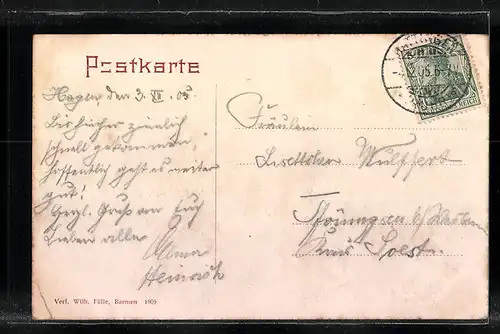 Postkarte
Hagen, den 3. VII. 05
Bis hierher ziemlich
schnell gekommen,
hoffentlich geht es weiter
gut!
Herzl. Gruß an Euch
Lieben alle
Alma
Heinrich
Fräulein
Wulffert
Kreis Soest.
Verl. Wilh. Fülle, Barmen 1905